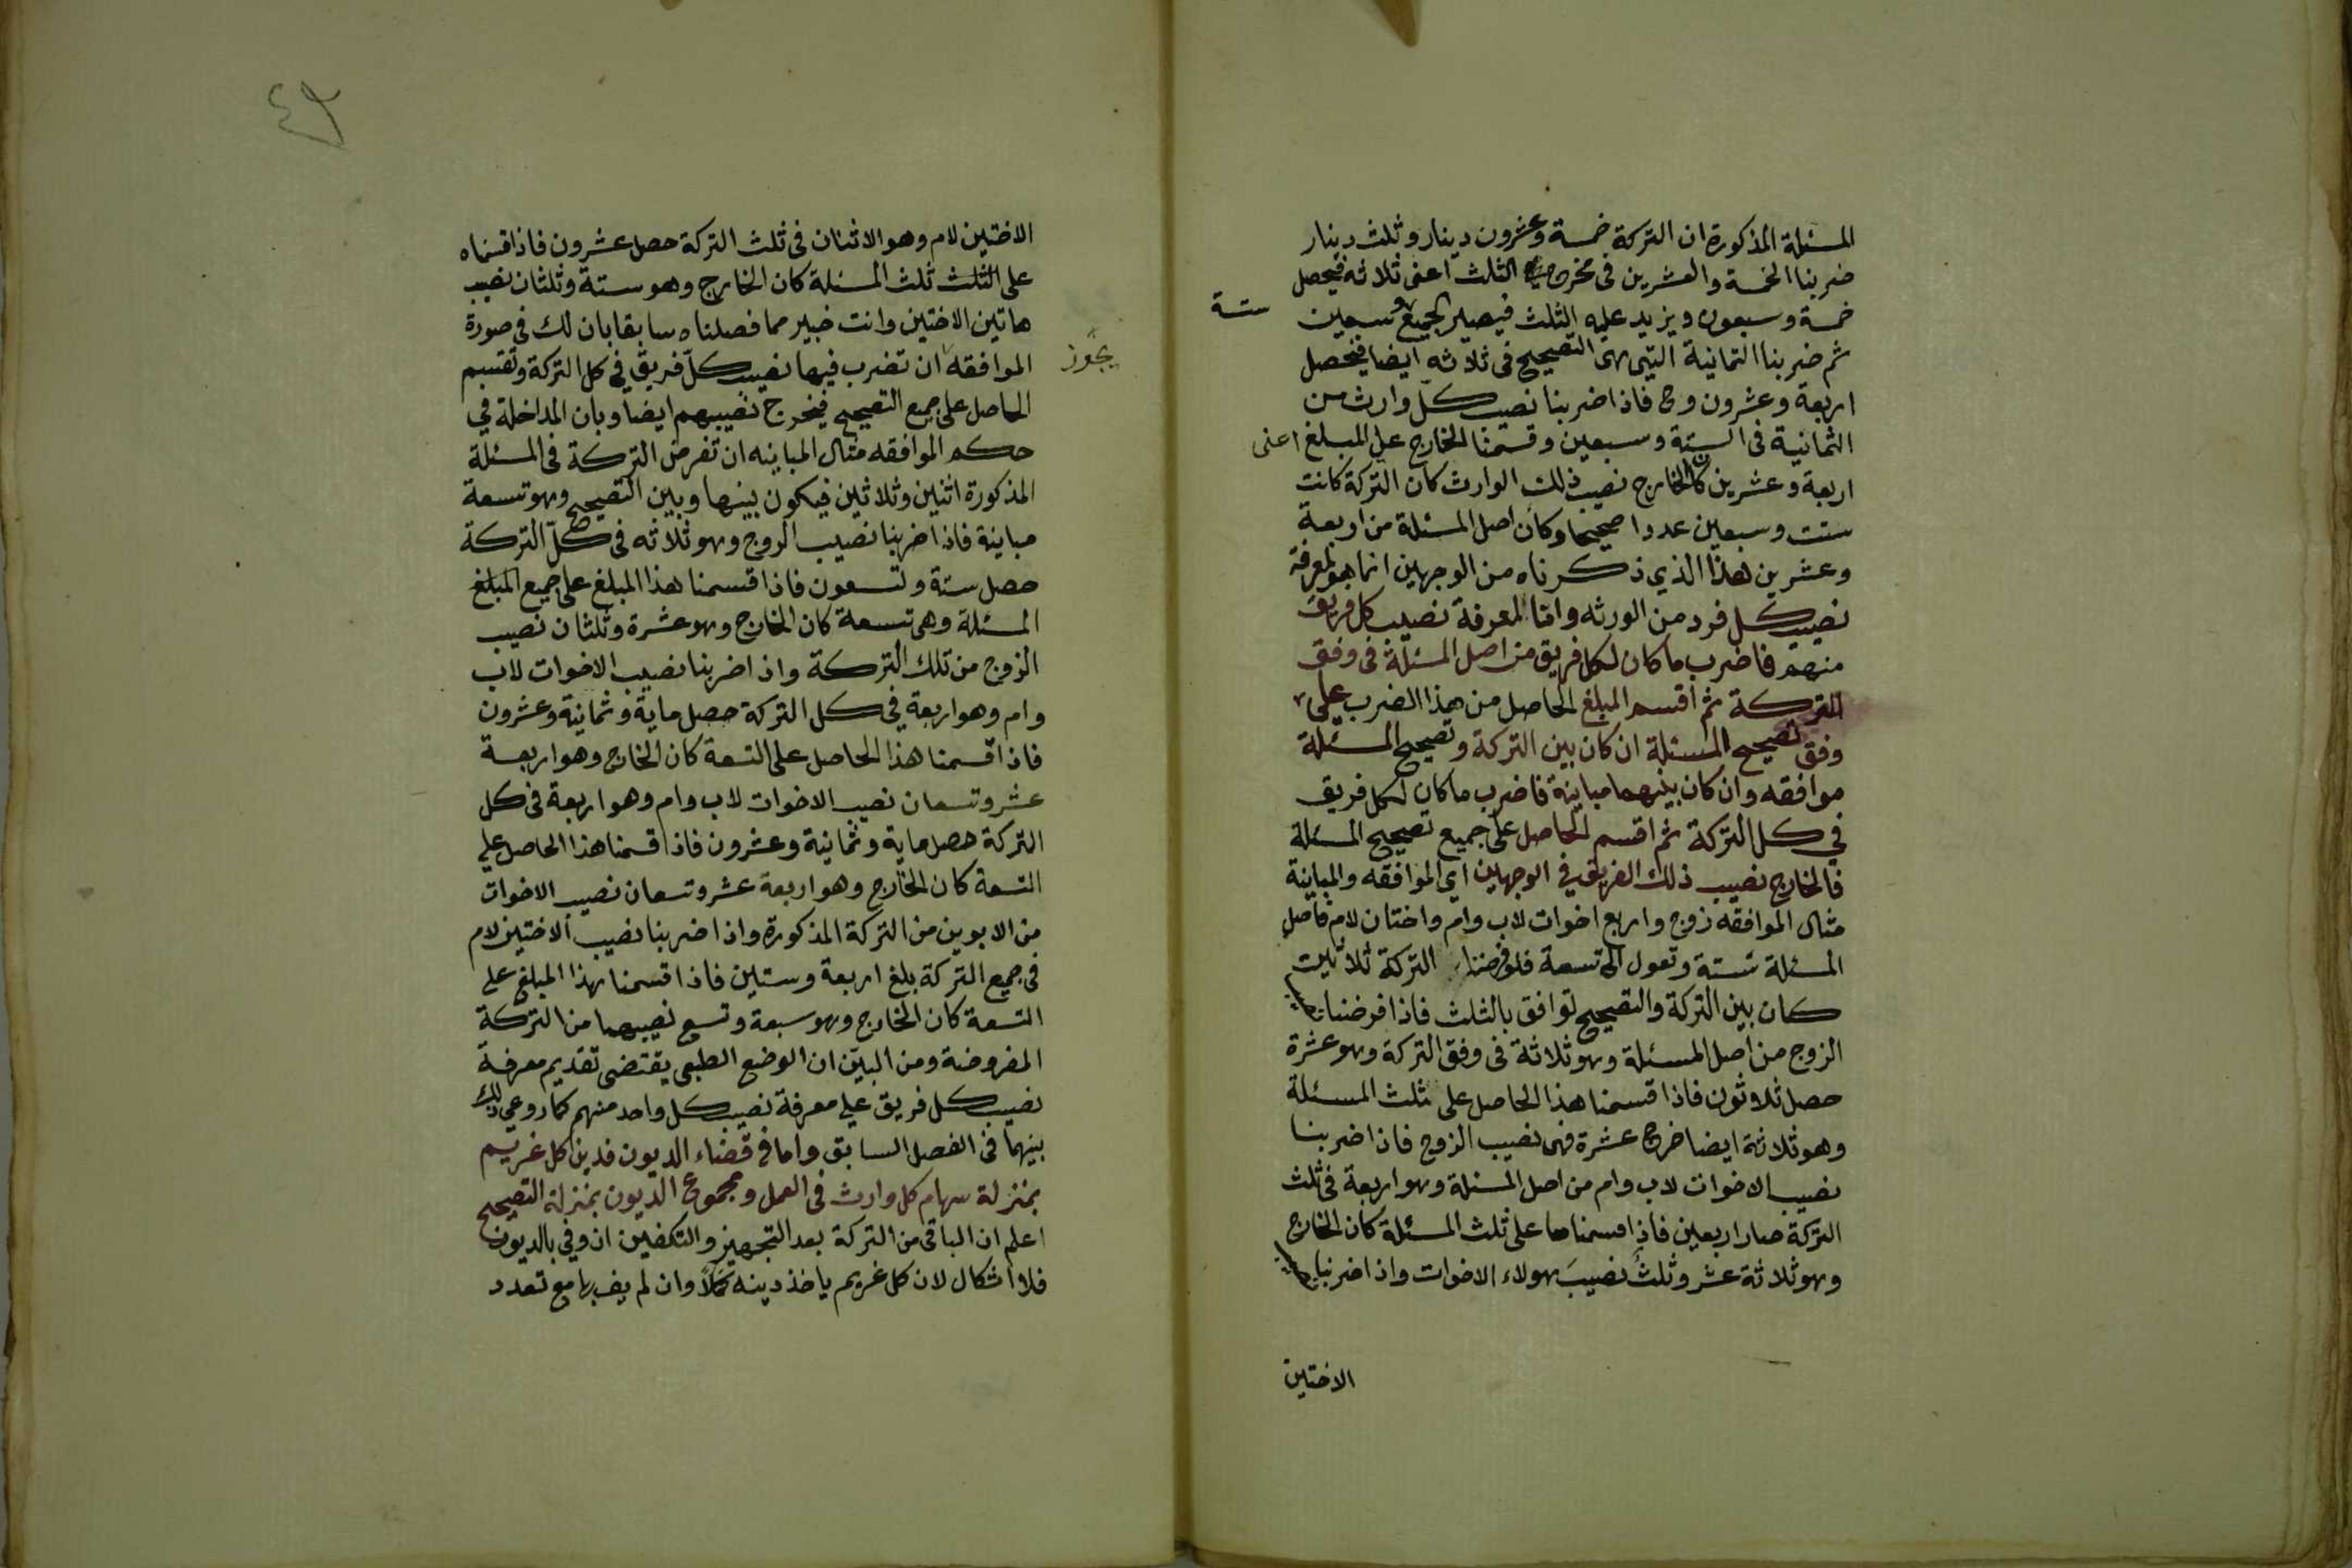 المسئلة المذكورة ان التركة خمسة وعشرون دينار وثلث دينار
ضربنا الخمسة والعشرين فى مخرج الثلث اعنى ثلاثة فيحصل
خمسة وسبعون ويزيد عليه الثلث فيصير الجميع وسبعين
ستة
ثم ضربنا الثمانية التى هى التصحيح فى ثلاثه ايضا فيحصل
اربعة وعشرون وح فاذا ضربنا نصيب كل وارث من
الثمانية فى الستة وسبعين وقسمنا الخارج على المبلغ اعنى
اربعة وعشرين كان الخارج نصيب ذلك الوارث كان التركة كانت
ستت وسبعين عددا صحيحا وكان اصل المسئلة من اربعة
وعشرين هذا الذي ذكرناه من الوجهين انما هو لمعرفة
نصيب كل فرد من الورثه واما لمعرفة نصيب كل فريق
منهم فاضرب ما كان لكل فريق من اصل المسئلة فى وفق
التركة ثم اقسم المبلغ الحاصل من هذا الضرب على
وفق تصحيح المسئلة ان كان بين التركة وتصحيح المسئلة
موافقه وان كان بينهما مباينة فاضرب ما كان لكل فريق
في كل التركة ثم اقسم الحاصل على جميع تصحيح المسئلة
فالخارج نصيب ذلك الفريق في الوجهين اي الموافقه والمباينة
مثال الموافقه زوج واربع اخوات لاب وام واختان لام فاصل
المسئلة ستة وتعول الى تسعة فلو فرضنا التركة ثلاثين
كان بين التركة والتصحيح توافق بالثلث فاذا فرضنا
الزوج من اصل المسئلة وهو ثلاثة فى وفق التركة وهو عشرة
حصل ثلاثون فاذا قسمنا هذا الحاصل على ثلث المسئلة
وهو ثلاثة ايضا خرج عشرة فهى نصيب الزوج فاذا ضربنا
نصيب الاخوات لاب وام من اصل المسئلة وهو اربعة فى ثلث
التركة صار اربعين فاذا قسمناها على ثلث المسئلة كان الخارج
وهو ثلاثة عشر وثلث نصيب هولاء الاخوات واذا ضربنا
الاختين
٤٩
الاختين لام وهو الاثنان فى ثلث التركة حصل عشرون فاذا قسمناه
على الثلث ثلث المسئلة كان الخارج وهو ستة وثلثان نصيب
هاتين الاختين وانت خبير مما فصلناه سابقا بان لك فى صورة
الموافقه ان تضرب فيها نصيب كل فريق في كل التركة وتقسم
يجوز
الحاصل على جميع التصحيح فيخرج نصيبهم ايضا وبان المداخلة في
حكم الموافقه مثال المباينه ان تفرض التركة فى المسئلة
المذكورة اثنين وثلاثين فيكون بينها وبين التصحيح وهو تسعة
مباينة فاذا ضربنا نصيب الزوج وهو ثلاثه فى كل التركة
حصل ستة وتسعون فاذا قسمنا هذا المبلغ على جميع المبلغ
المسئلة وهى تسعة كان الخارج وهو عشرة وثلثان نصيب
الزوج من تلك التركة واذا ضربنا نصيب الاخوات لاب
وام وهو اربعة في كل التركة حصل ماية وثمانية وعشرون
فاذا قسمنا هذا الحاصل على التسعة كان الخارج وهو اربعة
عشر وتسعان نصيب الاخوات لاب وام وهو اربعة فى كل
التركة حصل ماية وثمانية وعشرون فاذا قسمنا هذا الحاصل علي
التسعة كان الخارج وهو اربعة عشر وتسعان نصيب الاخوات
من الابوين من التركة المذكورة واذا ضربنا نصيب الاختين لام
فى جميع التركة بلغ اربعة وستين فاذا قسمنا هذا المبلغ على
التسعة كان الخارج وهو سبعة وتسع نصيبهما من التركة
المفروضة ومن البين ان الوضع الطبعى يقتضى تقديم معرفة
نصيب كل فريق علي معرفة نصيب كل واحد منهم كما روعي ذلك
بينهما فى الفصل السابق واما فى قضاء الديون فدين كل غريم
بمنزلة سهام كل وارث فى العمل ومجموع الديون بمنزلة التصحيح
اعلم ان الباقى من التركة بعد التجهيز والتكفين ان وفي بالديون
فلا اشكال لان كل غريم ياخذ دينه كملاً وان لم يف بها مع تعدد